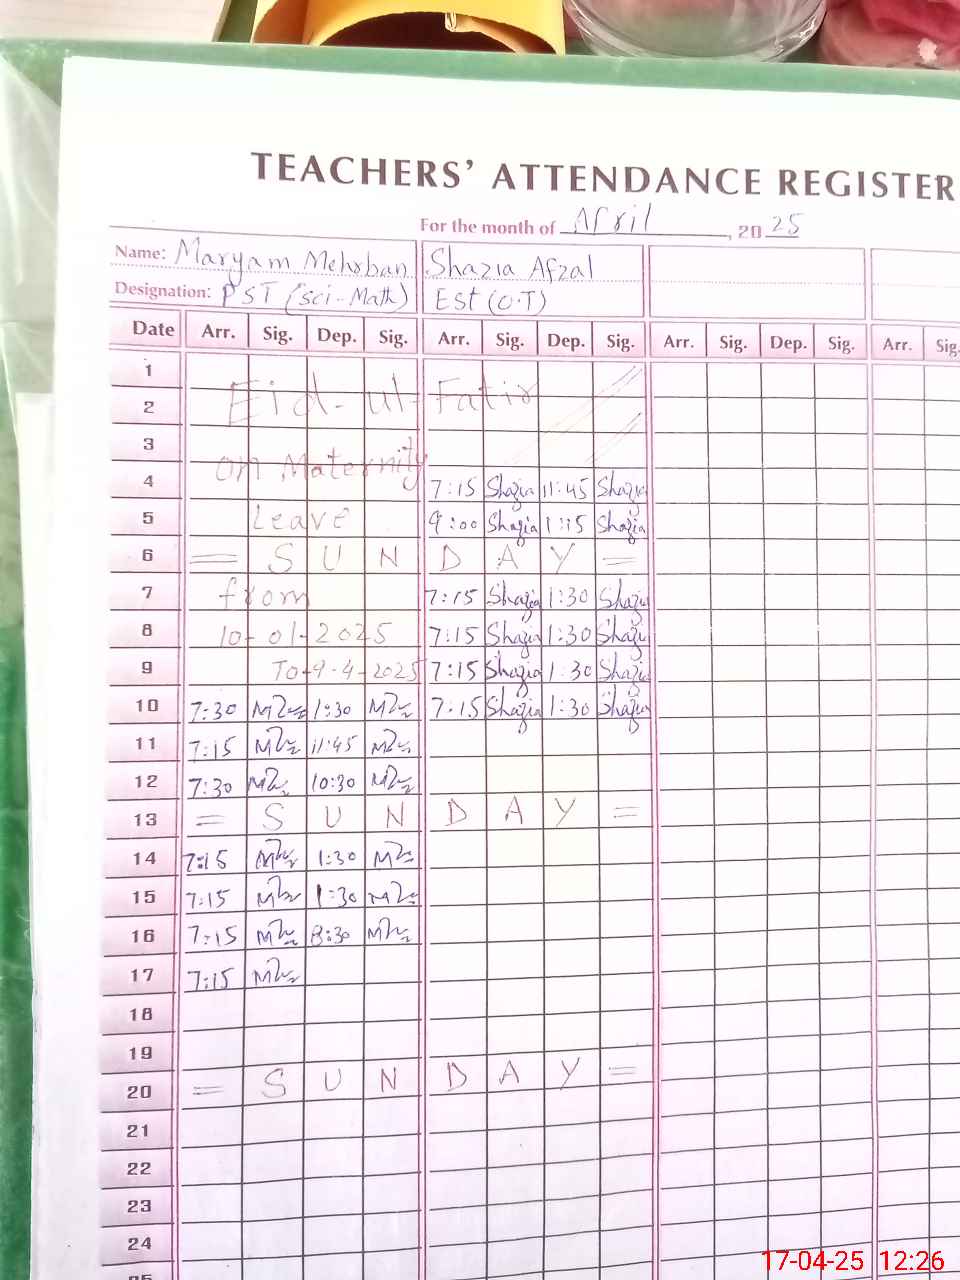 TEACHERS' ATTENDANCE REGISTER
For the month of April, 2025
Name: Maryam Mehrban Shazia Afzal
Designation: PST (sci-Math) Est (O.T)
Date Arr. Sig. Dep. Sig. Arr. Sig. Dep. Sig. Arr. Sig. Dep. Sig. Arr. Sig.
1
Eid-ul-Fatir
2
3
on Maternity
4 7:15 Shazia 11:45 Shazia
5 Leave 9:00 Shazia 1:15 Shazia
6 = S U N D A Y =
7 from 7:15 Shazia 1:30 Shazia
8 10-01-2025 7:15 Shazia 1:30 Shazia
9 To-9-4-2025 7:15 Shazia 1:30 Shazia
10 7:30 1:30 7:15 Shazia 1:30 Shazia
11 7:15 11:45
12 7:30 10:30
13 = S U N D A Y =
14 7:15 1:30
15 7:15 1:30
16 7:15 8:30
17 7:15
18
19
20 = S U N D A Y =
21
22
23
24
25
17-04-25 12:26